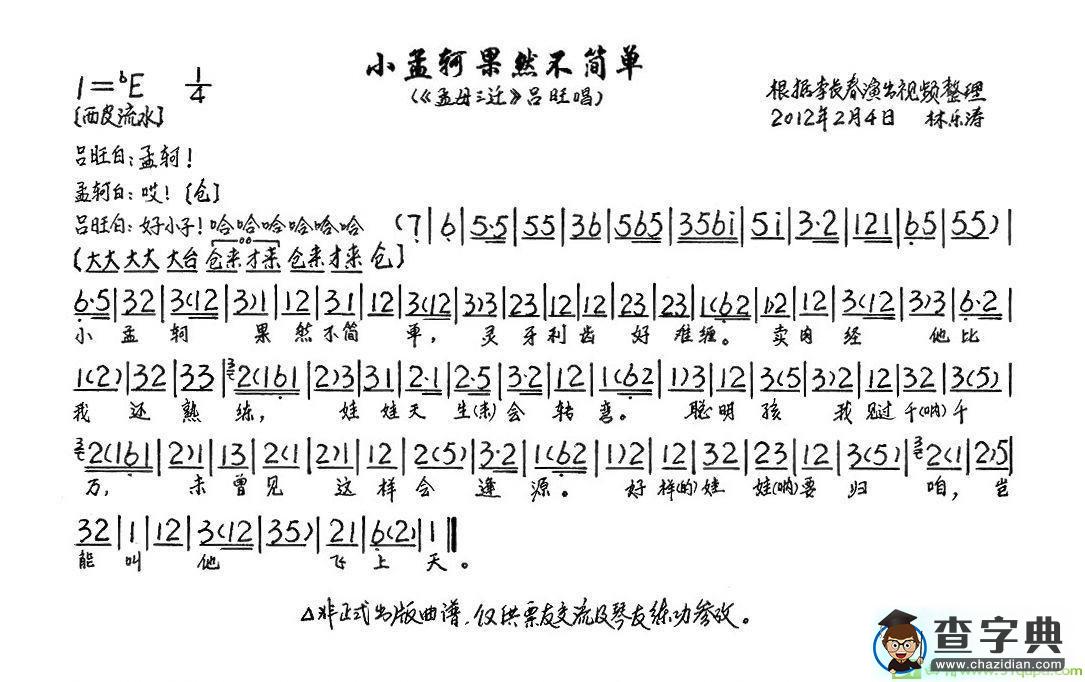 小孟轲果然不简单
(《孟母三迁》吕旺唱)
1=♭E 1/4
[西皮流水]
根据李长春演出视频整理
2012年2月4日 林乐涛
吕旺白:孟轲!
孟轲白:哎![仓]
吕旺白:好小子!哈哈哈哈哈哈 (7|6|5·5|55|36|565|356i|5i|3·2|121|65|55)|
[大大 大大 大台 仓来才来 仓来才来 仓]
6·5|32|3(12|3)1|12|31|12|3(12|3)3|23|12|12|23|23|1(62|1)2|12|3(12|3)3|6·2|
小孟轲果然不简单,灵牙利齿好难缠。卖肉经他比
1(2)|32|33|2(161|2)3|31|2·1|2·5|3·2|12|1(62|1)3|12|3(5|3)2|12|32|3(5)|
我还熟练,娃娃天生(来)会转弯。聪明孩我见过千(呐)千
2(161|2)1|13|2(1|2)1|12|2(5)|3·2|1(62|1)2|12|32|23|12|3(5)|2(1|2)5|
万,未曾见这样会逢源。好样(的)娃娃(呐)要归咱,岂
32|1|12|3(12|35)|21|6(2)|1‖
能叫他飞上天。
△非正式出版曲谱,仅供票友交流及琴友练功参改。
查字典
www.chazidian.com